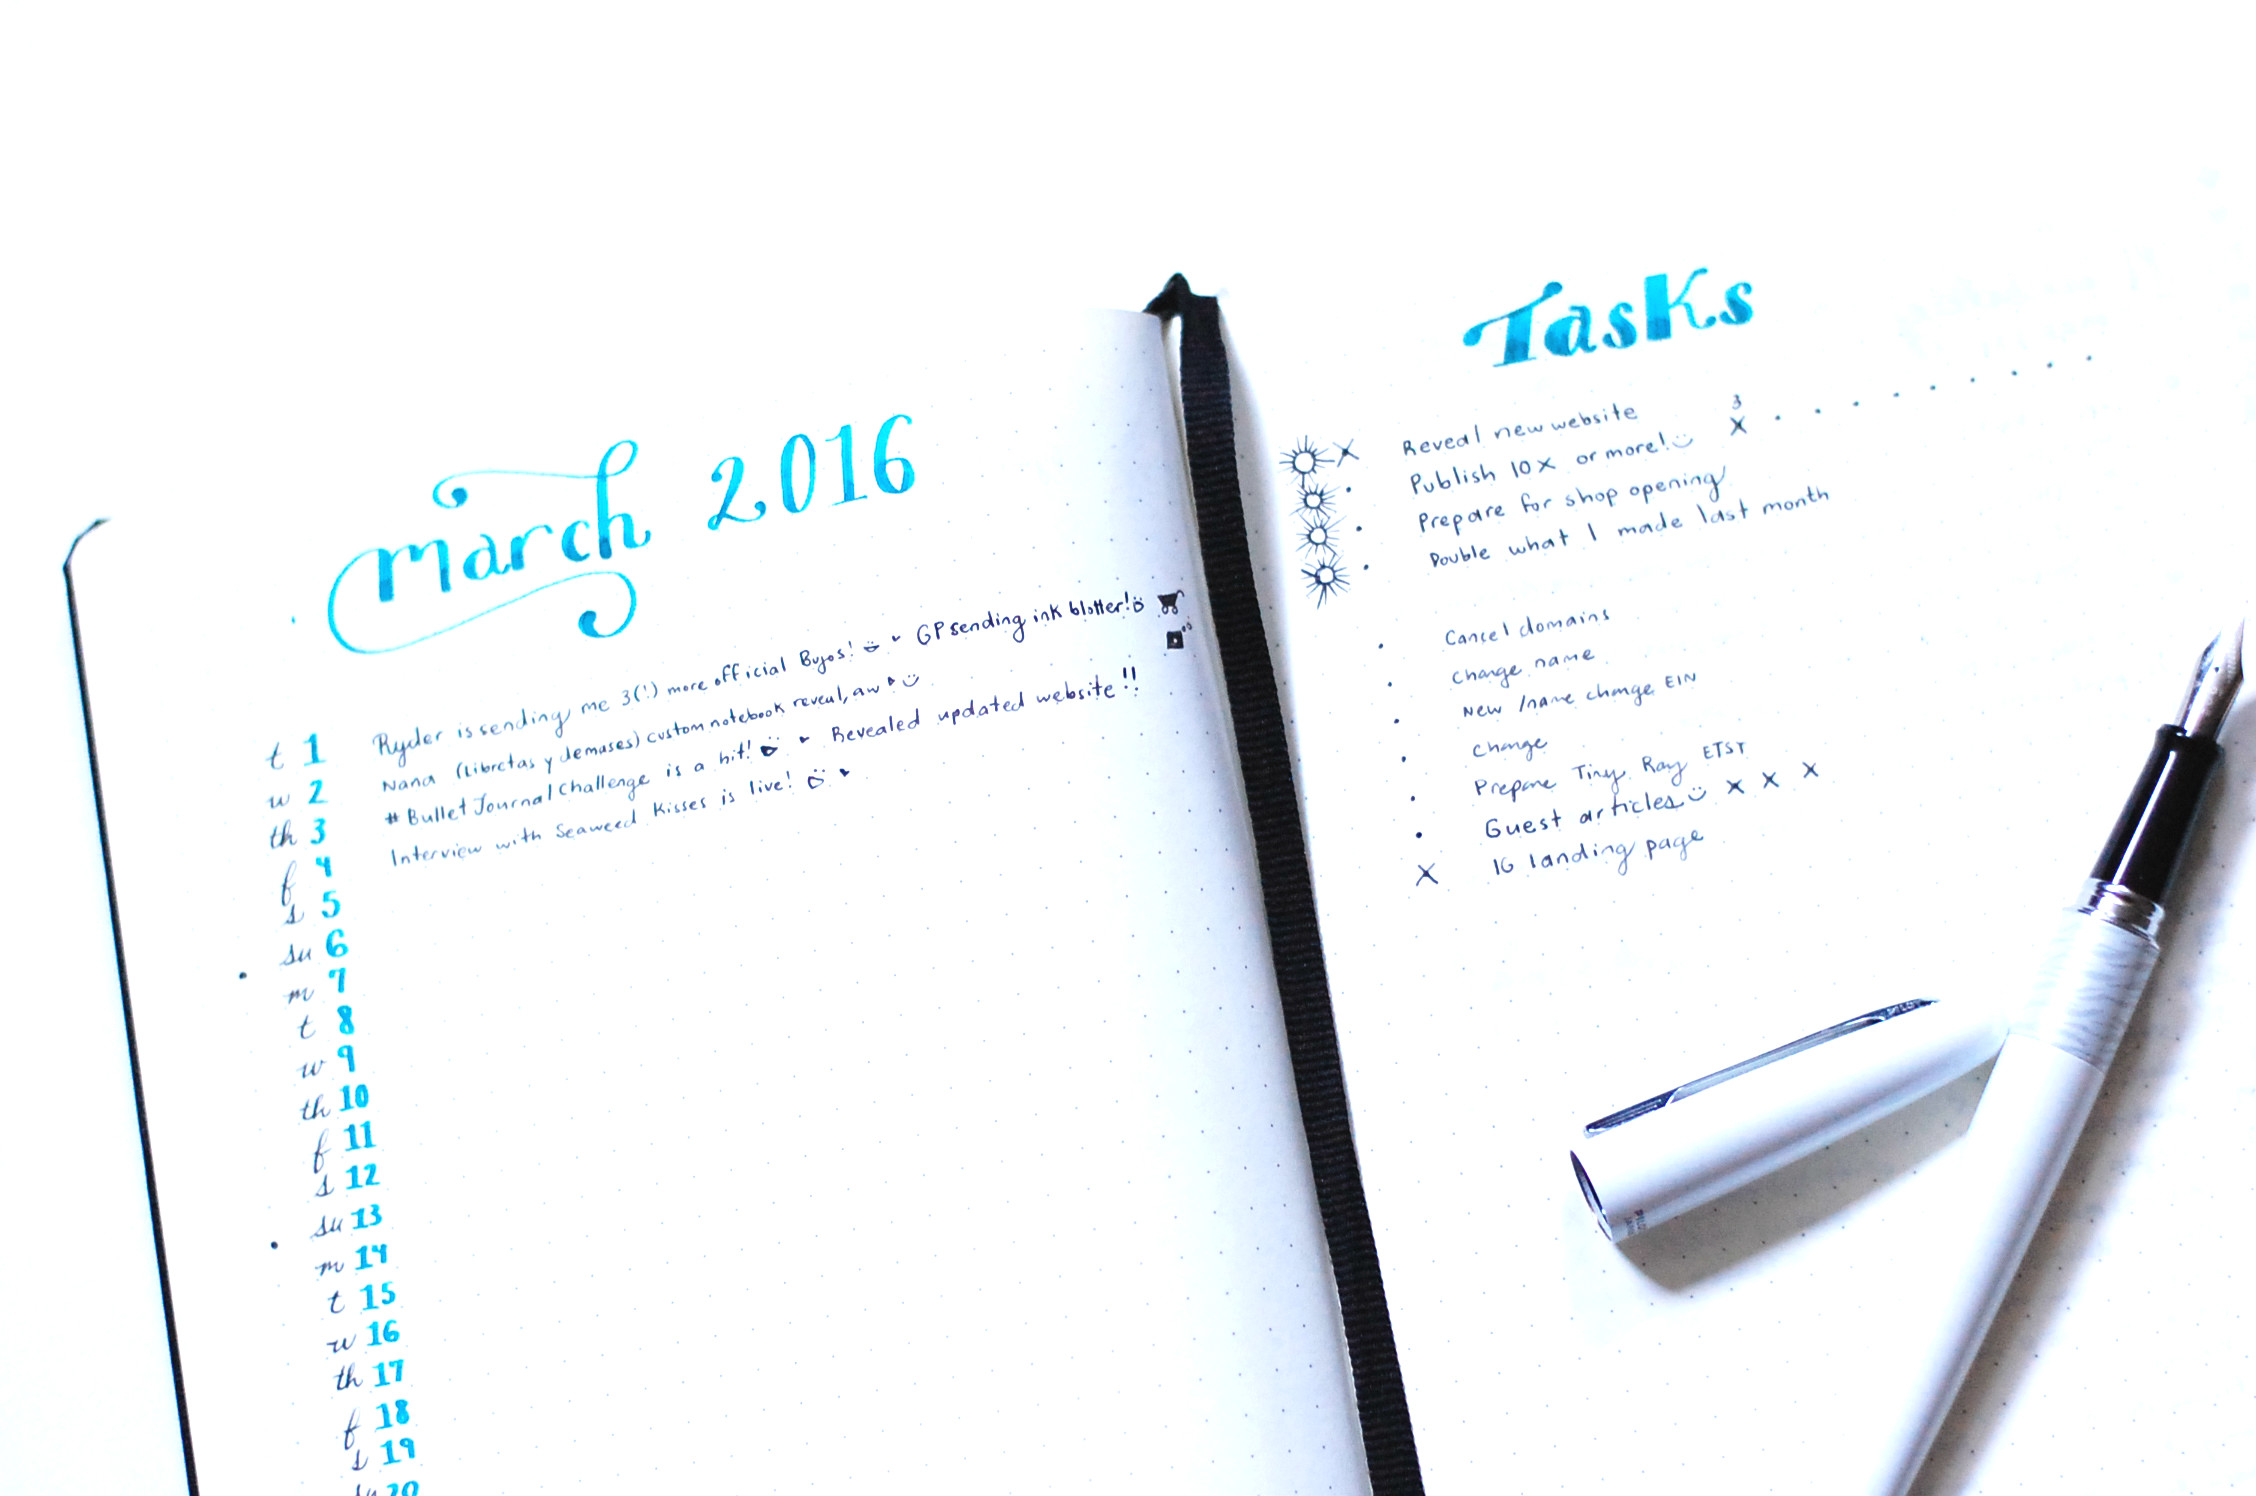 March 2016
t 1 Ryder is sending me 3(!) more official Bujos! GP sending ink blotter!
w 2 Nana (Libretas y demases) custom notebook reveal, aw
th 3 # Bullet Journal Challenge is a hit! Revealed updated website!!
f 4 Interview with Seaweed Kisses is live!
s 5
su 6
m 7
t 8
w 9
th 10
f 11
s 12
su 13
m 14
t 15
w 16
th 17
f 18
s 19
su 20
Tasks
x Reveal new website
• Publish 10x or more! 3 x • • • • • • • • •
• Prepare for shop opening
• Double what I made last month
• Cancel domains
• Change name
• New /name change EIN
• Change
• Prepare Tiny Ray ETSY
• Guest articles x x x
x IG landing page